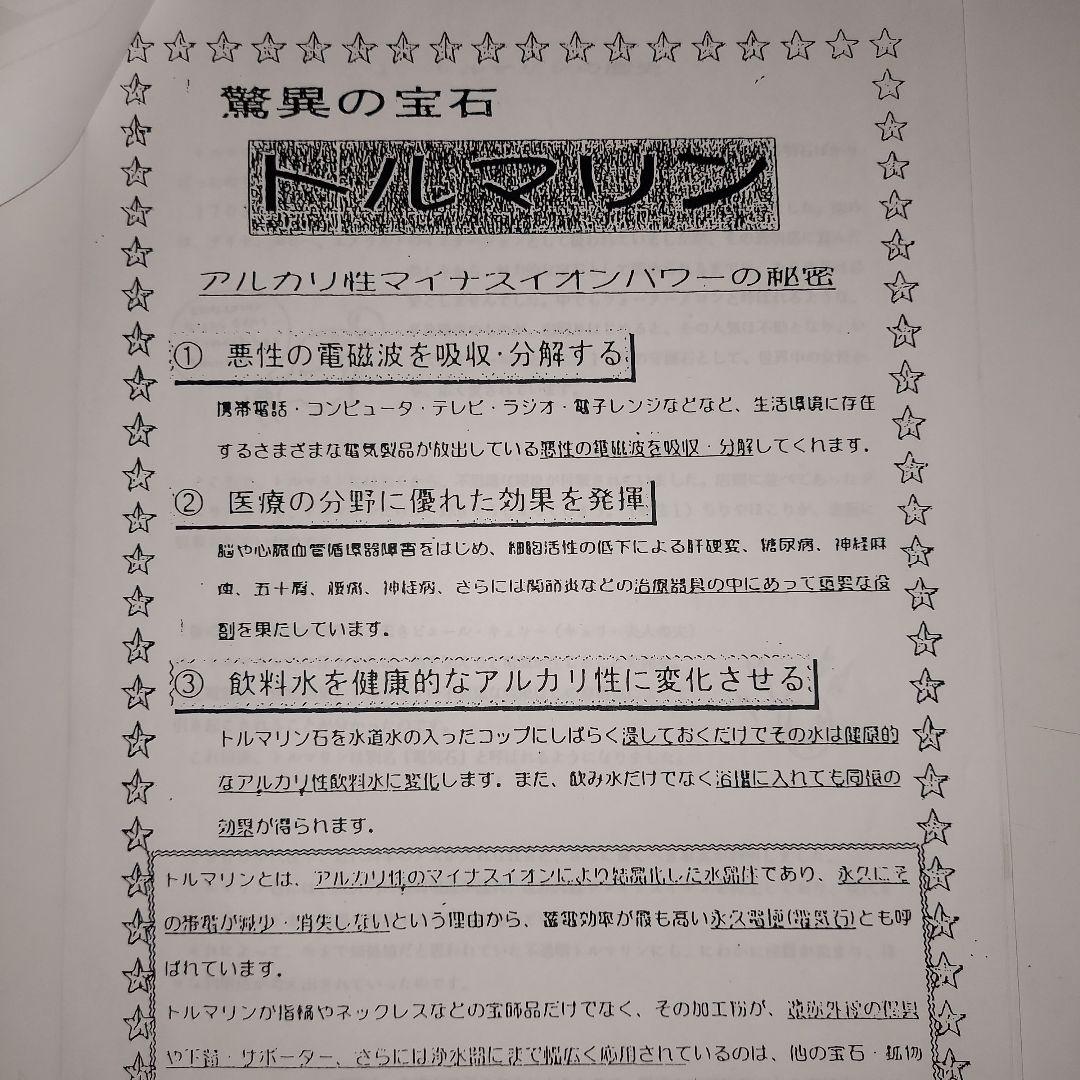 驚異の宝石
トルマリン
アルカリ性マイナスイオンパワーの秘密
① 悪性の電磁波を吸収・分解する
携帯電話・コンピュータ・テレビ・ラジオ・電子レンジなどなど、生活環境に存在
するさまざまな電気製品が放出している悪性の電磁波を吸収・分解してくれます。
② 医療の分野に優れた効果を発揮
脳や心臓血管循環器障害をはじめ、細胞活性の低下による肝硬変、糖尿病、神経麻
痺、五十肩、腰痛、神経病、さらには関節炎などの治療器具の中にあって重要な役
割を果たしています。
③ 飲料水を健康的なアルカリ性に変化させる
トルマリン石を水道水の入ったコップにしばらく浸しておくだけでその水は健康的
なアルカリ性飲料水に変化します。また、飲み水だけでなく浴槽に入れても同様の
効果が得られます。
トルマリンとは、アルカリ性のマイナスイオンにより結晶化した水晶体であり、永久にそ
の帯電が減少・消失しないという理由から、蓄電効率が最も高い永久電極(電気石)とも呼
ばれています。
トルマリンが指輪やネックレスなどの宝飾品だけでなく、その加工粉が、の寝具
や下着・サポーター、さらには浄水器にまで幅広く応用されているのは、他の宝石・鉱物